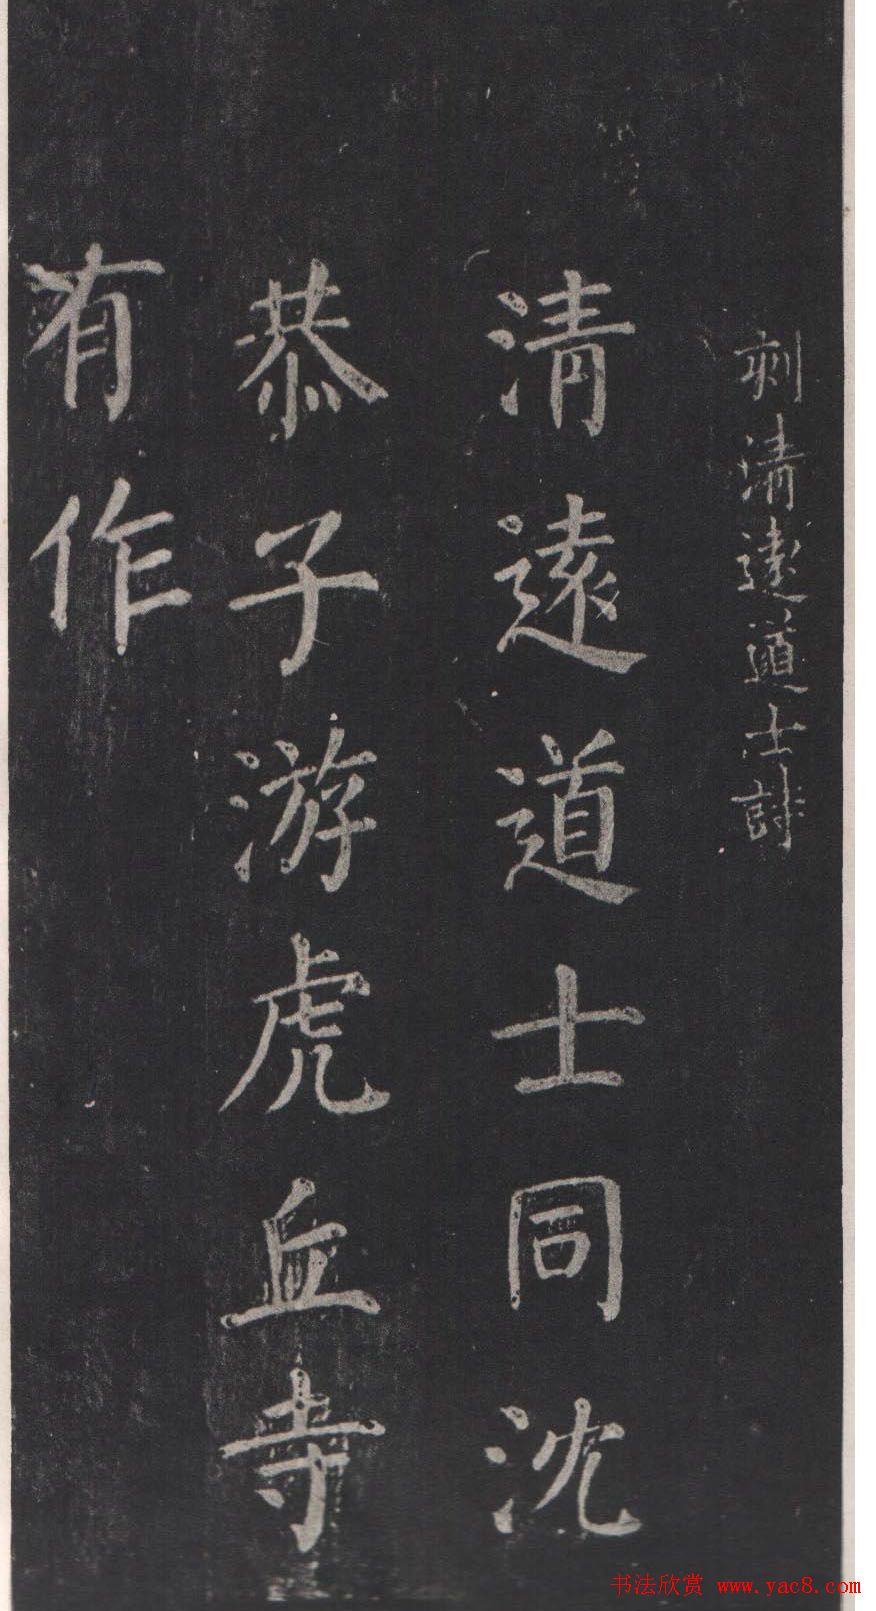 刻清遠道士詩
清遠道士同沈
恭子游虎丘寺
有作
书法欣赏 www.yac8.com